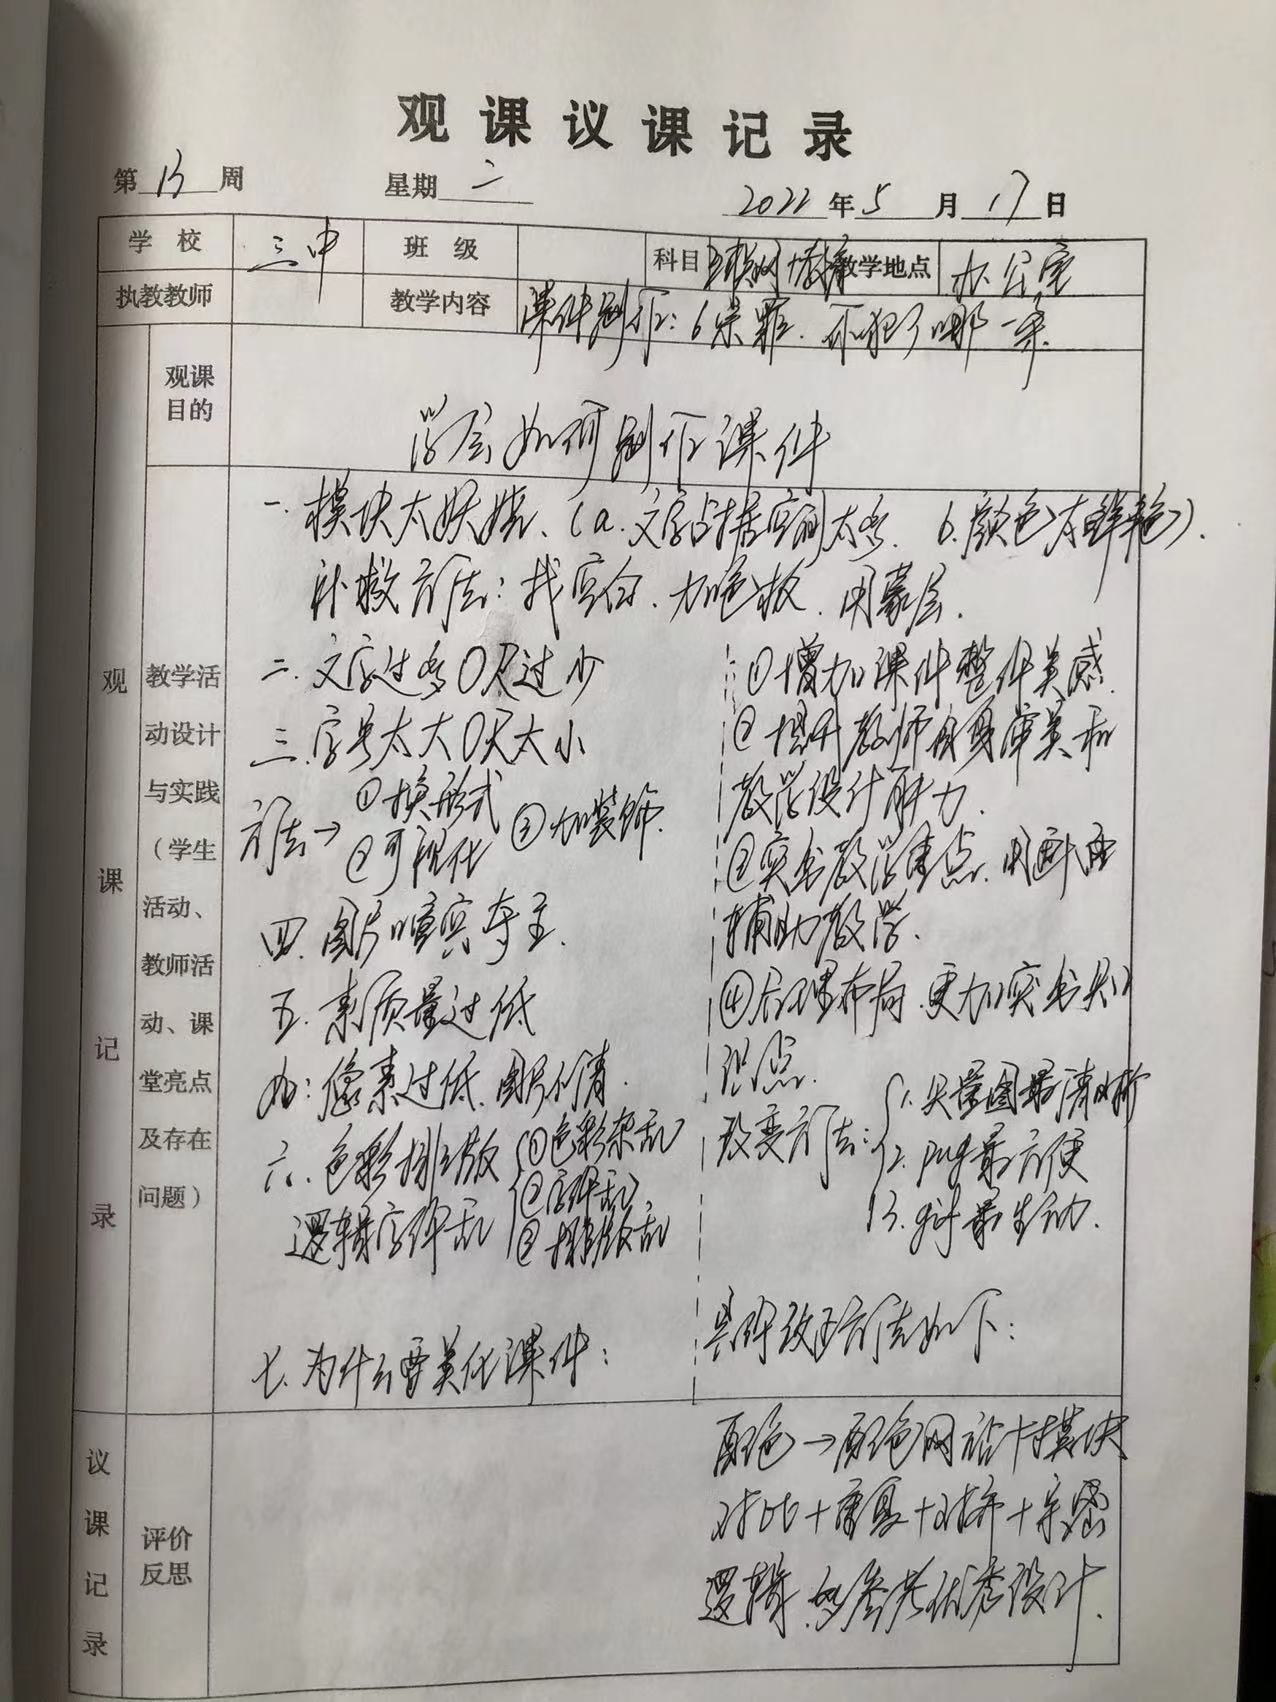 观课议课记录
第 13 周 星期 二 2022 年 5 月 17 日
学校 三中 班级 科目 教学地点 办公室
执教教师 教学内容 课件制作：6宗罪、你犯了哪一条
观课目的 学会如何制作课件
观课记录
教学活动设计与实践（学生活动、教师活动、课堂亮点及存在问题）
一. 模块太妖娆、（a. 文字占据空间太多、 b. 颜色太鲜艳）.
补救方法：找空白、加色板、用蒙层.
二. 文字过多 过少
三. 字号太大 太小
方法→ ①换形式 ②可视化 ③加装饰.
四. 图片喧宾夺主.
五. 素质量过低
如：像素过低、图片不清.
六. 色彩排版 ①色彩杂乱
逻辑字体乱 ②字体乱
③排版乱
七. 为什么要美化课件：
①增加课件整体美感.
②提升教师自身审美和
教学设计能力.
③突出教学重点、用画面
辅助教学.
④合理布局、更加突出知
识点.
改变方法： 1. 矢量图最清晰
2. png最方便
3. gif最生动.
具体改正方法如下：
议课记录
评价反思
配色→配色网站+模块
对比+重复+对齐+亲密
逻辑、多参考优秀设计.